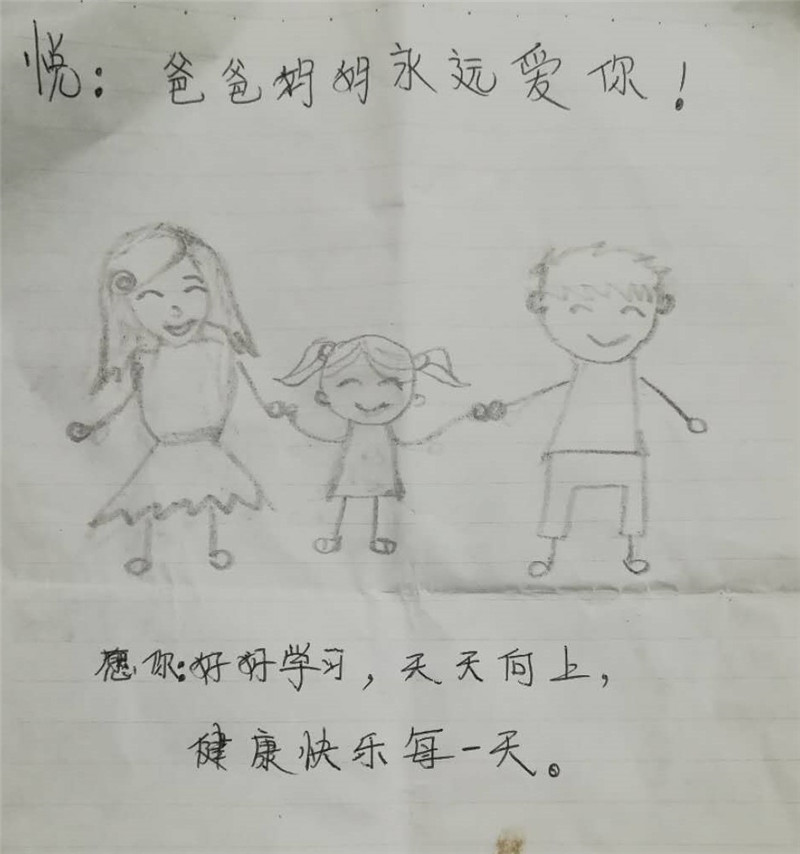 悦：爸爸妈妈永远爱你！
愿你：好好学习，天天向上，
健康快乐每一天。